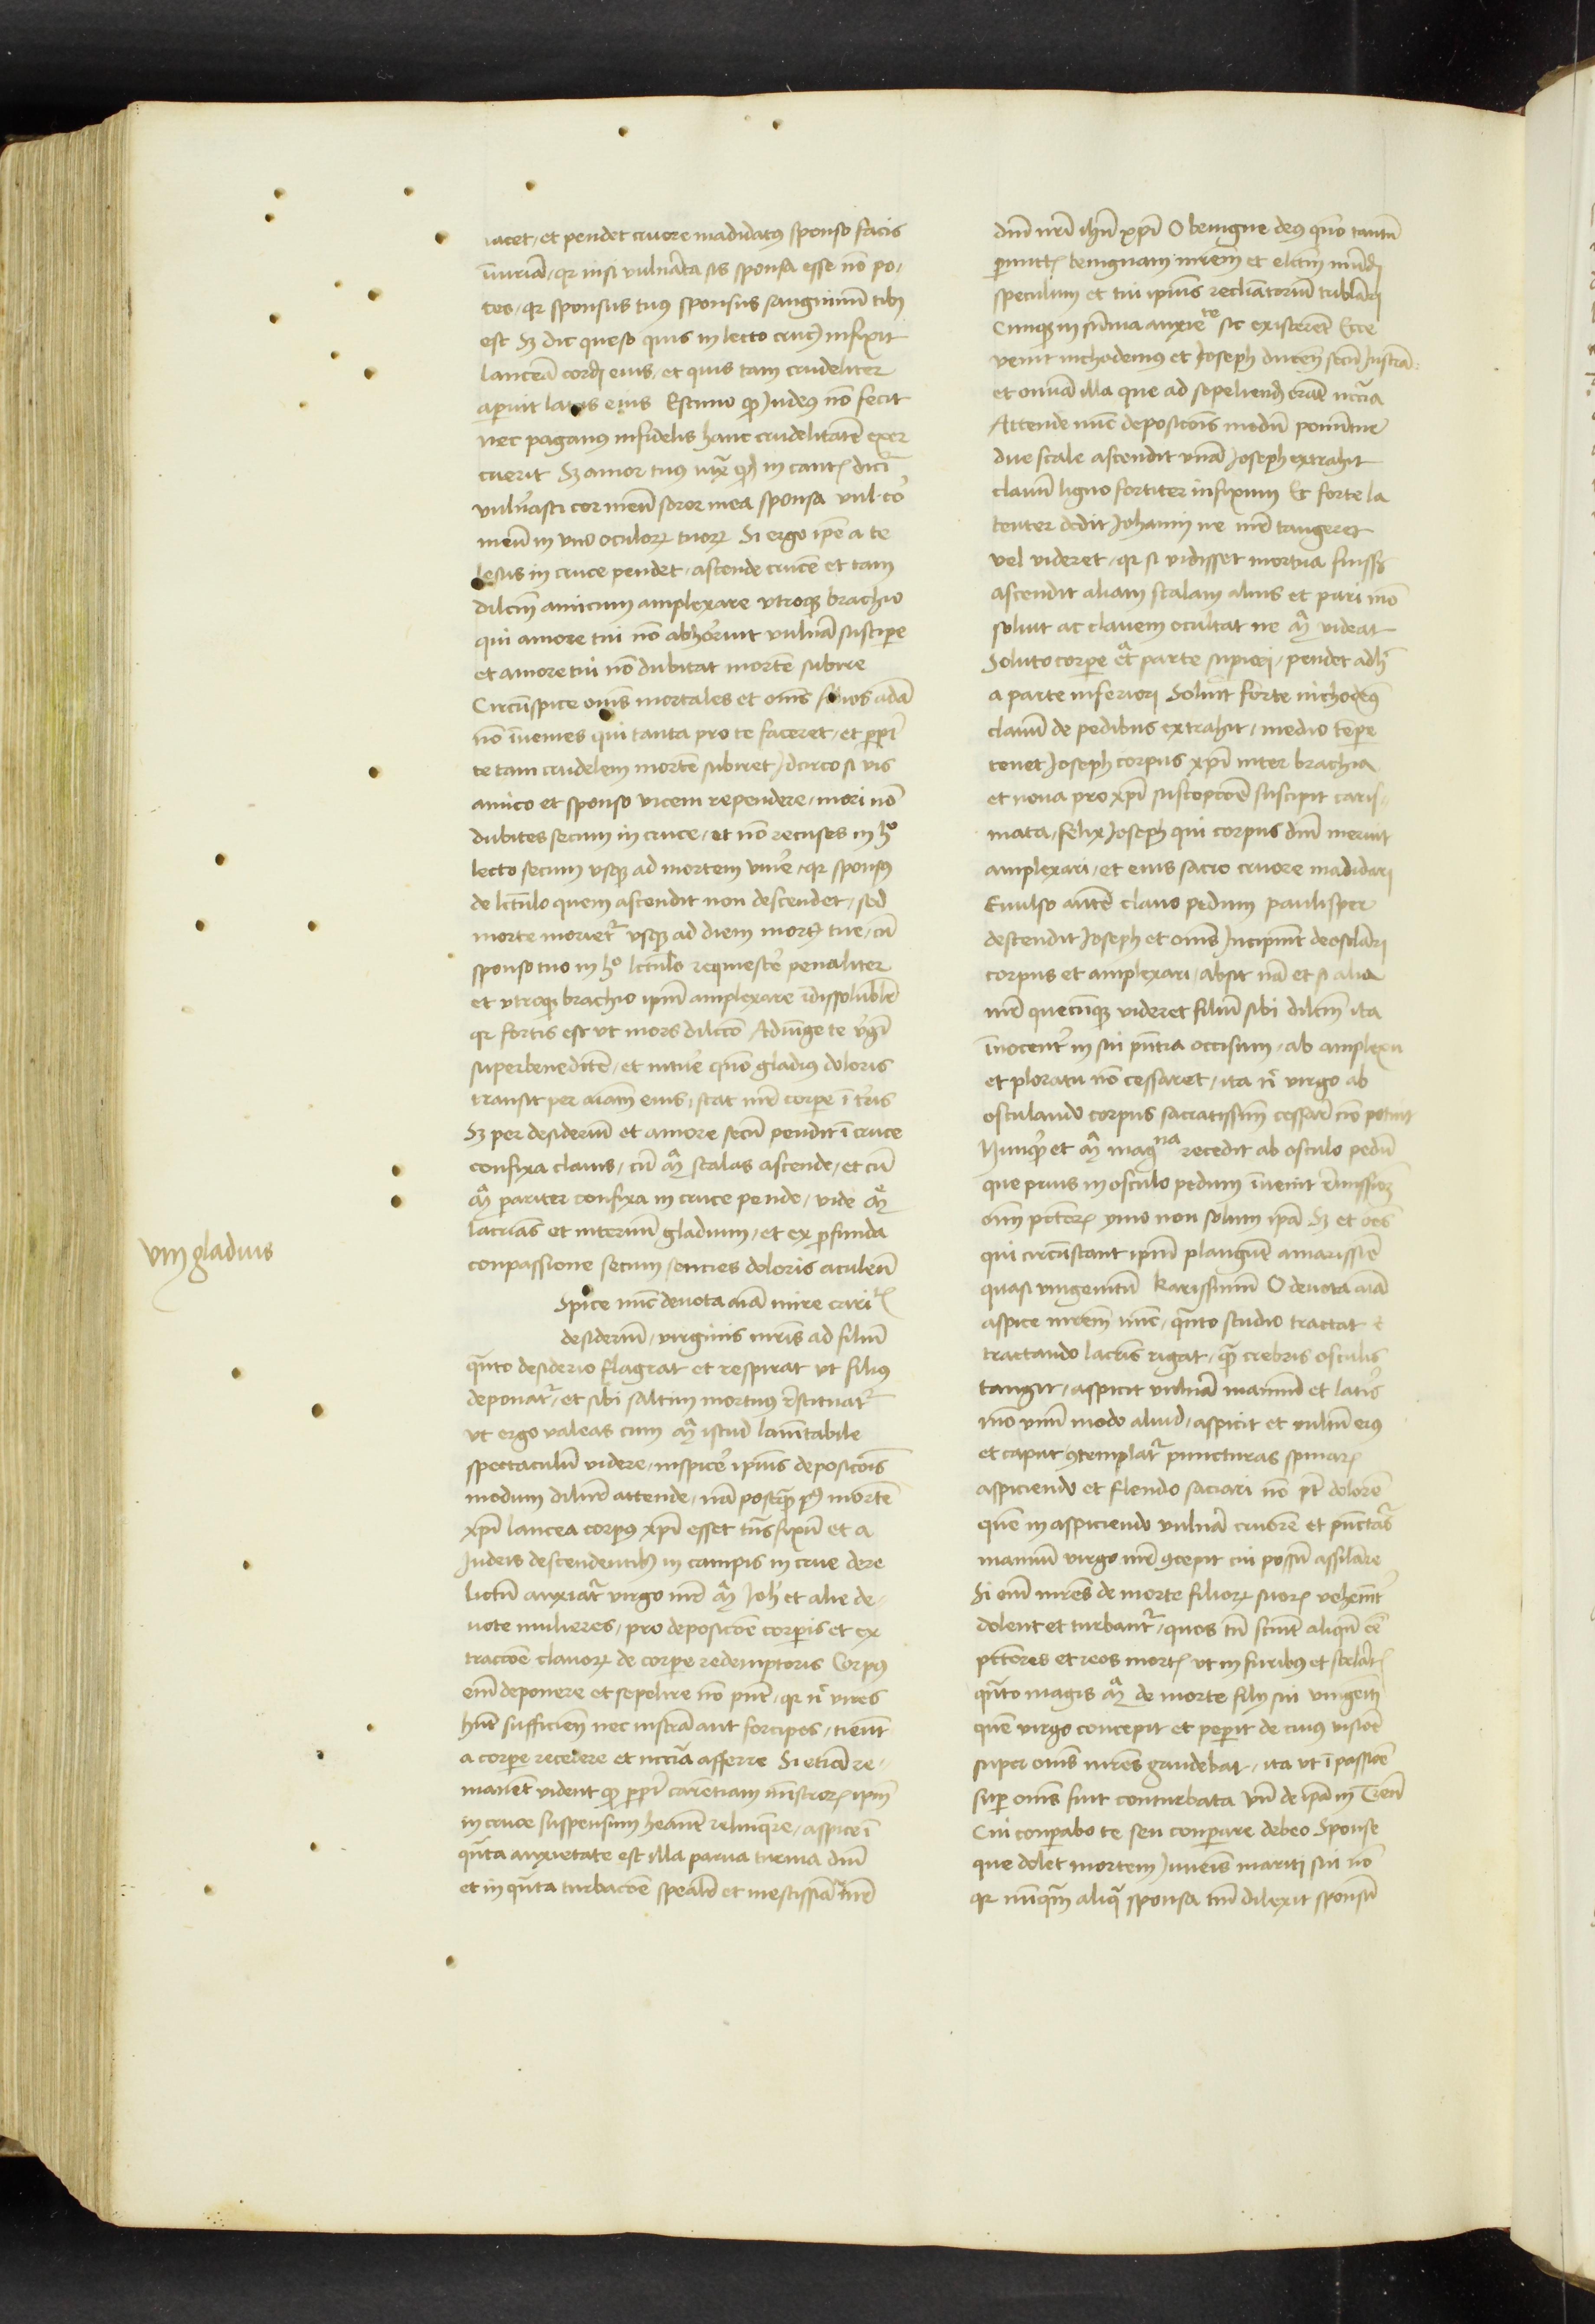 iacet, et pendet cruore madidatꝰ sponso facis
iniuriā, qr nisi vulnerata sis sponsa esse nō po-
tes, qr sponsus tuꝰ sponsus sanguinū tibi
est Sꝫ dic queso quis in lecto crucꝭ infixit
lanceā cordi eius, et quis tam crudeliter
aperuit latus eius Estimo ꝙ Judeꝰ nō fecit
nec paganꝰ infidelis hanc crudelitatē exer
cuerit Sꝫ amor tuꝰ iuxͣ qd in cantꝭ dicit̄
vulnerasti cor meū soror mea sponsa vul. cor
meū in vno oculorꝝ tuorꝝ Si ergo ipē a te
lesus in cruce pendet, ascende crucē et tam
dilcm̄ amicum amplexare vtroqꝫ brachio
qui amore tui nō abhorruit vulnera suscipe
et amore tui nō dubitat mortē subire
Circūspice om̄s mortales et om̄s filios adā
nō īuenies qui tanta pro te faceret, et ꝓpt̄
te tam crudelem mortē subiret, Idcirco si vis
amico et sponso vicem rependere, mori nō
dubites secum in cruce, et nō recuses in hͦ
lecto secum vsqꝫ ad mortem viue, qr sponsꝰ
de lectulo quem ascendit non descendet, sed
morte morietᷣ vsqꝫ ad diem mortꝭ tue, cū
sponso tuo in hͦ lectulo requiesce penaliter
et vtroqꝫ brachio ipm̄ amplexare īdissolubilr̄
qr fortis est vt mors dilcō Adiūge te vͦgī
superbenedictē, et intuere quō gladius doloris
transit per aīam eius, stat mr̄ corpe ī terris
Sꝫ per desideriū et amore secū pendit ī cruce
confixa clauis, cū Mͣ scalas ascende, et cū
Mͣ pariter confixa in cruce pende, vide Mͤ
lacrimas et internū gladium, et ex ꝓfunda
conpassione secum sencies doloris aculeū
Spice nūc deuota aīa mire cari
desideriū, virginis mr̄is ad filiū
quanto desiderio flagrat et respirat vt filiꝰ
deponatᷣ, et sibi saltim mortuꝰ restituatᷣ
vt ergo valeas cum Mͣ istud lamentabile
spectaculū videre, inspice ipius deposicōis
modum diligent̄ attende, nā postqͣ pꝰ mortē
xp̄i lancea corpꝰ xp̄i esset tn̄sfixū et a
Judeis descendentibꝫ in campis in cruce dere
lictū anxiatᷣ virgo mr̄ Mͣ Joh̄ et alie de-
uote mulieres, pro deposicōe corpis et ex
traccōe clauorꝝ de corpe redemptoris Corpꝰ
em̄ deponere et sepelire nō pn̄t, qr nͨ vires
hn̄t sufficien̄ nec instrͣa aut forcipes, timēt
a corpe recedere et necc̄ia afferre Si etiā re-
manēt vident ꝙ ꝓpt̄ carentiam ministrorꝝ ipm̄
in cruce suspensum heant relinquere, aspice ī
quanta anxietate est illa parua turma dn̄i
et in qn̄ta turbacōe spealit̄ et mestissia mr̄
dn̄i nr̄i ihū xp̄i O benigne deꝰ quō tantū
permittꝭ benignam mr̄em et elcm̄ mūdi
speculum et tui ipius reclinatoriū tribulari
Cumqꝫ in summa anxiete sic existeret Ecce
venit nichodemꝰ et Joseph ducen̄ secū Instrͣ
et omnia illa que ad sepeliendū erant necc̄ia
Attende nūc deposicōis modū ponuntur
due scale ascendit vnā Joseph extrahit
clauū ligno fortiter infixum Et forte la
tenter dedit Johanni ne mr̄ tangeret
vel videret, qr si vidisset mortua fuissꝫ
ascendit aliam scalam alius et pari mō
soluit ac clauem ocultat ne Mͣ videat
Soluto corpe ex parte supiori, pendet adhͨ
a parte inferiori Soluit forte nichodeꝰ
clauū de pedibus extrahit, medio tēpe
tenet Joseph corpus xp̄i inter brachia
et noua pro xp̄i suscepcōe suscipit caris-
mata, felix Joseph qui corpus dn̄i meruit
amplexari, et eius sacro cruore madidari
Euulso autē clauo pedum paulisper
descendit Joseph et om̄s Incipiunt deosculari
corpus et amplexari, absit nā et si alia
mr̄ quecūqꝫ videret filiū sibi dilcm̄ ita
īnocent̄ in sui pn̄tia occisum, ab amplexu
et ploratu nō cessaret, ita nͨ virgo ab
osculando corpus sacratissim̄ cessare nō potuit
Nunqͣ et Mͣ magna recedit ab osculo pedū
que prius in osculo pedum īuenit remissionē
om̄ pctōrꝝ ymo non solum ipā Sꝫ et oēs
qui circūstant ipm̄ plangunt amarissiē
quasi vnigenitū karissimū O deuota aīa
aspice mr̄em nūc, quanto studio tractat et
tractando lacrimis rigat, qͣ crebris osculis
tangit, aspicit vulnera manuū et lateris
mō vnū modo aliud, aspicit et vultū eiꝰ
et caput ꝯtemplatᷣ puncturas spinarꝝ
aspiciendo et flendo saciari nō pt̄ dolorē
quē in aspiciendo vulnera cruorē et puncturas
manuū virgo mr̄ ꝯcepit cui possū assilare
Si em̄ mr̄es de morte filiorꝝ suorꝝ vehemēt̄
dolent et turbantᷣ, quos tn̄ sciunt aliqn̄ eē
pctōres et reos mortꝭ vt in furibꝰ et sceleratꝭ
quanto magis Mͣ de morte filij sui vnigeniti
quē virgo concepit et peperit de cuiꝰ visiōe
super om̄s mr̄es gaudebat, ita vt ī passiōe
sup om̄s fuit conturbata Vn̄ de ipā in Tren̄
Cui conparabo te seu conparare debeo Sponse
que dolet mortem Juuenis mariti sui nō
qr nūqͣm aliqͣ sponsa tm̄ dilexit sponsū
viij gladius